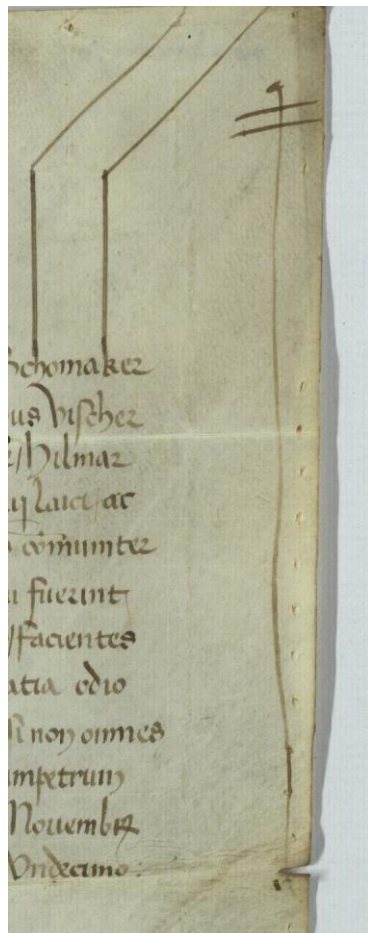 Schomaker
us Vischer
Hilmar
laici ac
comuniter
fuerint
facientes
atia odio
non omnes
impetrum
Novembr
Undecimo